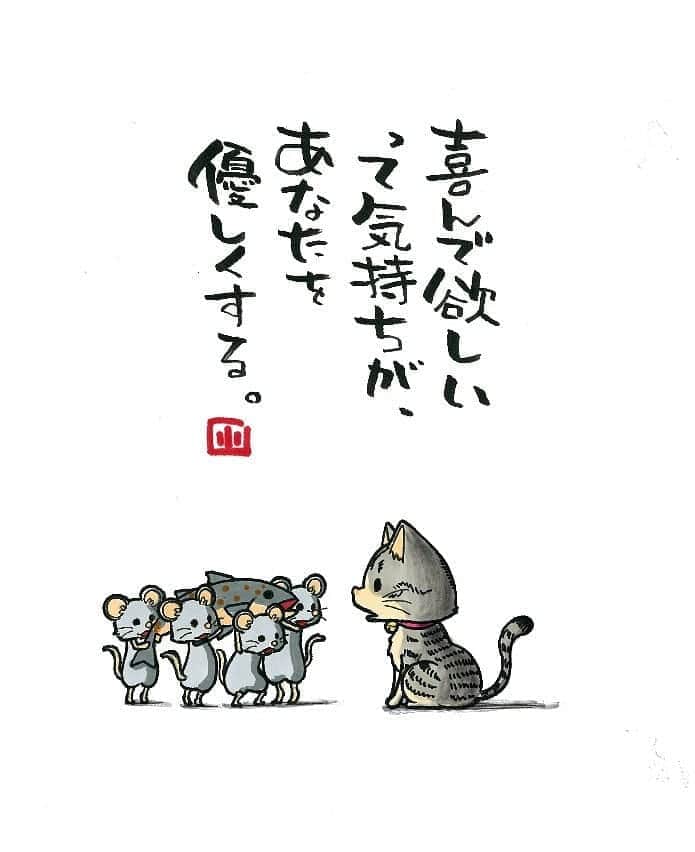 喜んで欲しい
って気持ちが、
あなたを
優しくする。